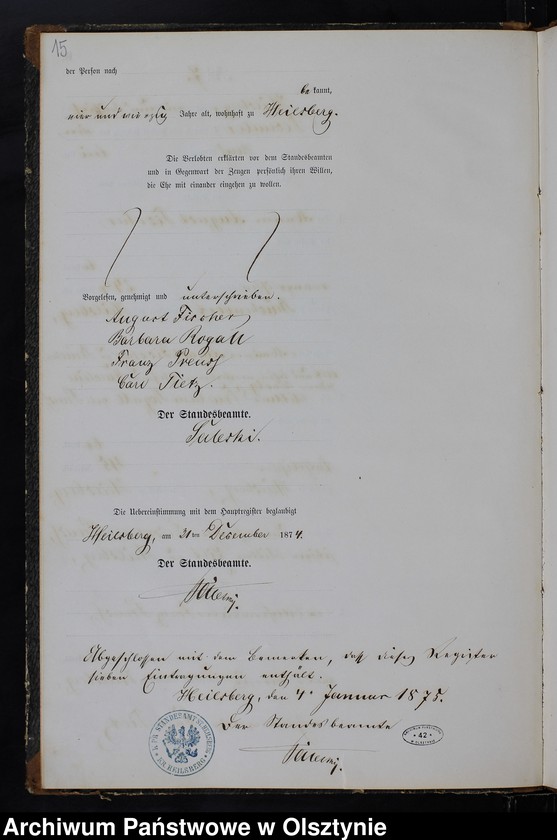 15
der Person nach
be kannt,
vier und vierzig Jahre alt, wohnhaft zu Heilsberg.
Die Verlobten erklärten vor dem Standesbeamten
und in Gegenwart der Zeugen persönlich ihren Willen,
die Ehe mit einander eingehen zu wollen.
Vorgelesen, genehmigt und unterschrieben.
August Fischer
Barbara Rogall
Franz Preusch
Carl Tietz.
Der Standesbeamte.
Die Uebereinstimmung mit dem Hauptregister beglaubigt
Heilsberg, am 31ten December 1874.
Der Standesbeamte.
Abgeschlossen mit dem Bemerken, daß dieses Register
sieben Eintragungen enthält.
Heilsberg, den 4. Januar 1875.
Der Standesbeamte
HEILSBERG
42
Archiwum Państwowe w Olsztynie